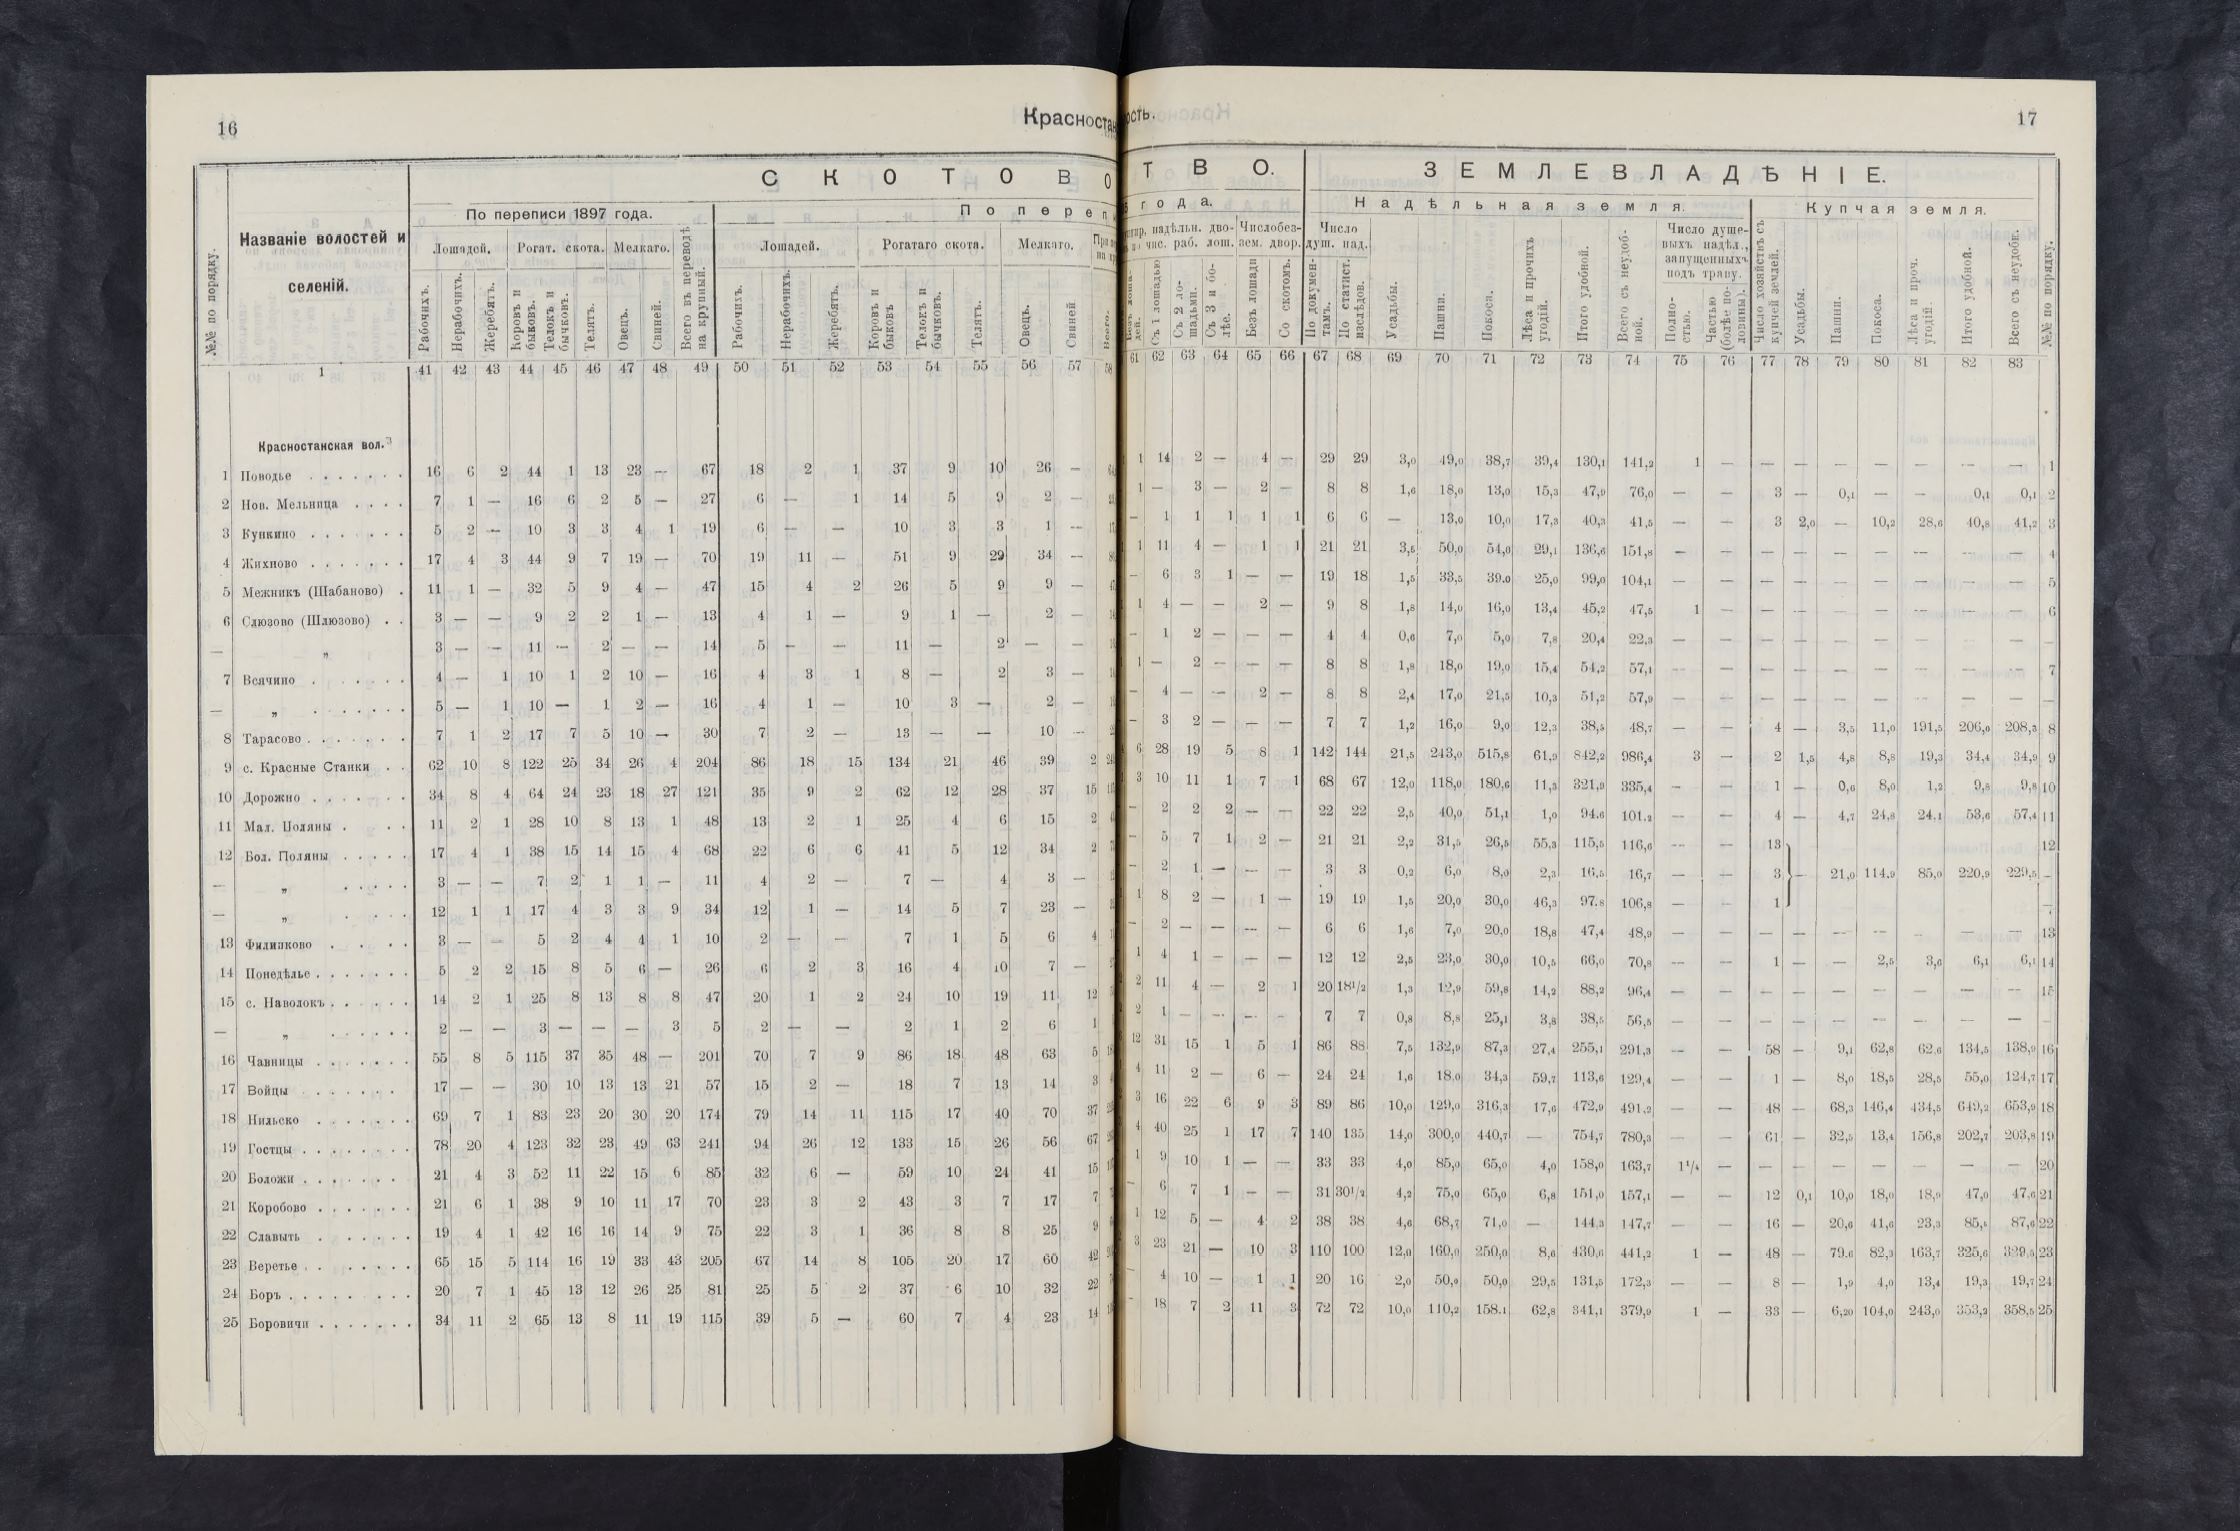 16
Красностан
№№ по порядку.
Названіе волостей и селеній.
С К О Т О В О
По переписи 1897 года.
П о п е р е п
Лошадей. Рогат. скота. Мелкаго.
Лошадей. Рогатаго скота. Мелкаго.
Рабочихъ. Нерабочихъ. Жеребятъ. Коровъ и быковъ. Телокъ и бычковъ. Телятъ. Овецъ. Свиней. Всего въ переводѣ на крупный.
Рабочихъ. Нерабочихъ. Жеребятъ. Коровъ и быковъ Телокъ и бычковъ. Телятъ. Овецъ. Свиней Всего.
1 41 42 43 44 45 46 47 48 49 50 51 52 53 54 55 56 57 58
Красностанская вол.
1 Поводье 16 6 2 44 1 13 23 — 67 18 2 1 37 9 10 26 —
2 Нов. Мельница 7 1 — 16 6 2 5 — 27 6 — 1 14 5 9 2 —
3 Кункино 5 2 — 10 3 3 4 1 19 6 — — 10 3 3 1 —
4 Жихново 17 4 3 44 9 7 19 — 70 19 11 — 51 9 29 34 —
5 Межникъ (Шабаново) 11 1 — 32 5 9 4 — 47 15 4 2 26 5 9 9 —
6 Слюзово (Шлюзово) 3 — — 9 2 2 1 — 13 4 1 — 9 1 — 2 —
— „ 3 — — 11 — 2 — — 14 5 — — 11 — 2 — —
7 Всячино 4 — 1 10 1 2 10 — 16 4 3 1 8 — 2 3 —
— „ 5 — 1 10 — 1 2 — 16 4 1 — 10 3 — 2 —
8 Тарасово 7 1 2 17 7 5 10 — 30 7 2 — 13 — — 10 —
9 с. Красные Станки 62 10 8 122 25 34 26 4 204 86 18 15 134 21 46 39 2
10 Дорожно 34 8 4 64 24 23 18 27 121 35 9 2 62 12 28 37 15
11 Мал. Поляны 11 2 1 28 10 8 13 1 48 13 2 1 25 4 6 15 2
12 Бол. Поляны 17 4 1 38 15 14 15 4 68 22 6 6 41 5 12 34 2
— „ 3 — — 7 2 1 1 — 11 4 2 — 7 — 4 3 —
— „ 12 1 1 17 4 3 3 9 34 12 1 — 14 5 7 23 —
13 Филипково 3 — — 5 2 4 4 1 10 2 — — 7 1 5 6 4
14 Понедѣлье 5 2 2 15 8 5 6 — 26 6 2 3 16 4 10 7 —
15 с. Наволокъ 14 2 1 25 8 13 8 8 47 20 1 2 24 10 19 11 12
— „ 2 — — 3 — — — 3 5 2 — — 2 1 2 6 1
16 Чавницы 55 8 5 115 37 35 48 — 201 70 7 9 86 18 48 63 5
17 Войцы 17 — — 30 10 13 13 21 57 15 2 — 18 7 13 14 3
18 Нильско 69 7 1 83 23 20 30 20 174 79 14 11 115 17 40 70 37
19 Гостцы 78 20 4 123 32 23 49 63 241 94 26 12 133 15 26 56 67
20 Боложи 21 4 3 52 11 22 15 6 85 32 6 — 59 10 24 41 15
21 Коробово 21 6 1 38 9 10 11 17 70 23 3 2 43 3 7 17 7
22 Славыть 19 4 1 42 16 16 14 9 75 22 3 1 36 8 8 25 9
23 Веретье 65 15 5 114 16 19 33 43 205 67 14 8 105 20 17 60 42
24 Боръ 20 7 1 45 13 12 26 25 81 25 5 2 37 6 10 32 22
25 Боровичи 34 11 2 65 13 8 11 19 115 39 5 — 60 7 4 23 14
ость.
17
Т В О.
З Е М Л Е В Л А Д Ѣ Н І Е.
г о д а.
Н а д ѣ л ь н а я з е м л я.
К у п ч а я з е м л я.
надѣльн. дво- чис. раб. лош. Число без- зем. двор. Число душ. над.
Число душе- выхъ надѣл., запущенныхъ подъ траву.
Съ 1 лошадью Съ 2 ло- шадьми. Съ 3 и бо- лѣе. Безъ лошади Со скотомъ. По докумен- тамъ. По статист. изслѣдов. Усадьбы. Пашни. Покоса. Лѣса и прочихъ угодій. Итого удобной. Всего съ неудоб- ной. Полно- стью. Частью (болѣе по- ловины). Число хозяйствъ съ купчей землей. Усадьбы. Пашни. Покоса. Лѣса и проч. угодій. Итого удобной. Всего съ неудобн. №№ по порядку.
61 62 63 64 65 66 67 68 69 70 71 72 73 74 75 76 77 78 79 80 81 82 83
1 14 2 — 4 — 29 29 3,0 49,0 38,7 39,4 130,1 141,2 1 — — — — — — — — 1
1 — 3 — 2 — 8 8 1,6 18,0 13,0 15,3 47,9 76,0 — — 3 — 0,1 — — 0,1 0,1 2
— 1 1 1 1 1 6 6 — 13,0 10,0 17,3 40,3 41,5 — — 3 2,0 — 10,2 28,6 40,8 41,2 3
1 11 4 — 1 1 21 21 3,5 50,0 54,0 29,1 136,6 151,8 — — — — — — — — — 4
— 6 3 1 — — 19 18 1,5 33,5 39.0 25,0 99,0 104,1 — — — — — — — — — 5
1 4 — — 2 — 9 8 1,8 14,0 16,0 13,4 45,2 47,5 1 — — — — — — — — 6
— 1 2 — — — 4 4 0,6 7,0 5,0 7,8 20,4 22,3 — — — — — — — — — —
1 — 2 — — — 8 8 1,8 18,0 19,0 15,4 54,2 57,1 — — — — — — — — — 7
— 4 — — 2 — 8 8 2,4 17,0 21,5 10,3 51,2 57,9 — — — — — — — — — —
— 3 2 — — — 7 7 1,2 16,0 9,0 12,3 38,5 48,7 — — 4 — 3,5 11,0 191,5 206,0 208,3 8
6 28 19 5 8 1 142 144 21,5 243,0 515,8 61,9 842,2 986,4 3 — 2 1,5 4,8 8,8 19,3 34,4 34,9 9
3 10 11 1 7 1 68 67 12,0 118,0 180,6 11,3 321,9 335,4 — — 1 — 0,6 8,0 1,2 9,8 9,8 10
— 2 2 2 — — 22 22 2,5 40,0 51,1 1,0 94.6 101.2 — — 4 — 4,7 24,8 24.1 53,6 57,4 11
— 5 7 1 2 — 21 21 2,2 31,5 26,5 55,3 115,5 116,6 — — 13 12
— 2 1 — — — 3 3 0,2 6,0 8,0 2,3 16,5 16,7 — — 3 — 21,0 114.9 85,0 220,9 229,5 —
1 8 2 — 1 — 19 19 1,5 20,0 30,0 46,3 97.8 106,8 — — 1 —
— 2 — — — — 6 6 1,6 7,0 20,0 18,8 47,4 48,9 — — — — — — — — — 13
1 4 1 — — — 12 12 2,5 23,0 30,0 10,5 66,0 70,8 — — 1 — — 2,5 3,6 6,1 6,1 14
2 11 4 — 2 1 20 18½ 1,3 12,9 59,8 14,2 88,2 96,4 — — — — — — — — — 15
2 1 — — — — 7 7 0,8 8,8 25,1 3,8 38,5 56,5 — — — — — — — — — —
12 31 15 1 5 1 86 88 7,5 132,9 87,3 27,4 255,1 291,3 — — 58 — 9,1 62,8 62,6 134,5 138,9 16
4 11 2 — 6 — 24 24 1,6 18.0 34,3 59,7 113,6 129,4 — — 1 — 8,0 18,5 28,5 55,0 124,7 17
3 16 22 6 9 3 89 86 10,0 129,0 316,3 17,6 472,9 491.2 — — 48 — 68,3 146,4 434,5 649,2 653,9 18
4 40 25 1 17 7 140 135 14,0 300,0 440,7 — 754,7 780,3 — — 61 — 32,5 13,4 156,8 202,7 203,8 19
1 9 10 1 — — 33 33 4,0 85,0 65,0 4,0 158,0 163,7 1¼ — — — — — — — — 20
— 6 7 1 — — 31 30½ 4,2 75,0 65,0 6,8 151,0 157,1 — — 12 0,1 10,0 18,0 18,9 47,0 47,6 21
1 12 5 — 4 2 38 38 4,6 68,7 71,0 — 144,3 147,7 — — 16 — 20,6 41,6 23,3 85,5 87,6 22
3 23 21 — 10 3 110 100 12,0 160,0 250,0 8,6 430,6 441,2 1 — 48 — 79.6 82,3 163,7 325,6 329,5 23
— 4 10 — 1 1 20 16 2,0 50,0 50,0 29,5 131,5 172,3 — — 8 — 1,9 4,0 13,4 19,3 19,7 24
— 18 7 2 11 3 72 72 10,0 110,2 158.1 62,8 341,1 379,9 1 — 33 — 6,20 104,0 243,0 353,2 358,5 25